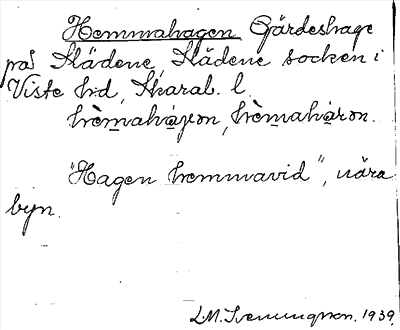 Hemmahagen Gärdeshage
på Slädene, Slädene socken i
Viste h:d, Skarab. l.
hèmahágən, hèmaháɾən.
"Hagen hemmavid", nära
byn.
L.M. Svenungsson. 1939.